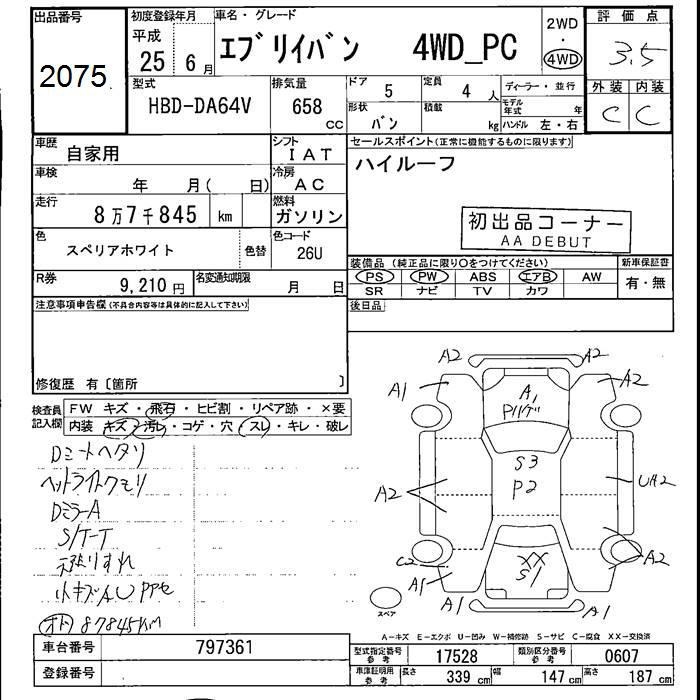 出品番号
2075
初度登録年月
平成
25 6 月
車名・グレード
エブリイバン 4WD_PC
2WD
・
4WD
評価点
3.5
外装 内装
C C
型式
HBD-DA64V
排気量
658
CC
ドア 5
定員 4 人
ディーラー・並行
形状 バン
積載 kg
モデル年式 年
ハンドル 左・右
車歴
自家用
シフト
IAT
車検
年 月( 日)
冷房
AC
走行
8万7千845 km
燃料
ガソリン
色
スペリアホワイト
色替
色コード
26U
R券
9,210 円
名変通知期限
月 日
セールスポイント(正常に機能するものに限ります)
ハイルーフ
初出品コーナー
AA DEBUT
装備品(純正品に限り○をつけてください)
新車保証書
PS PW ABS エアB AW
SR ナビ TV カワ
有・無
後日品
注意事項申告欄(不具合内容等は具体的に記入して下さい)
修復歴 有〔箇所 〕
検査員記入欄
FW キズ・飛石・ヒビ割・リペア跡・×要
内装 キズ・汚レ・コゲ・穴・スレ・キレ・破レ
Dミートヘタリ
ヘットライトクモリ
DミラーA
S/T-T
小キズAU PPセ
87845KM
A2 A2
A1 A2
A1
S3
P2
A2
UA2
C2 A2
A1
XX
S1
A1 A1
スペア
A-キズ E-エクボ U-凹み W-補修跡 S-サビ C-腐食 XX-交換済
車台番号
797361
登録番号
型式指定番号
参考
17528
類別区分番号
参考
0607
車庫証明用
参考
長さ 339 cm
幅 147 cm
高さ 187 cm